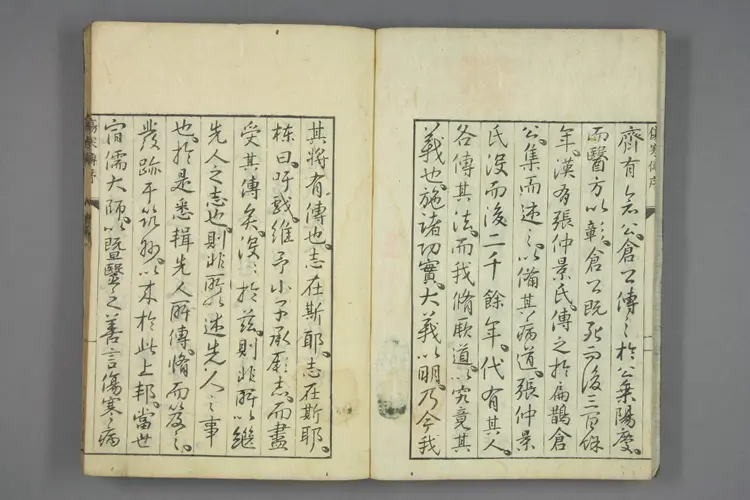 齊有倉公倉公傳之於公乗陽慶
而醫方以彰倉公既死而後三百餘
年漢有張仲景氏傳之於扁鵲倉
公集而述之以備其病道張仲景
氏没而後二千餘年代有其人
各傳其法而我脩厥道以究竟其
義也施諸功實大義以明乃今我
其將有傳也志在斯耶志在斯耶
棟曰吁戯維予小子承厥志而盡
受其傳矣没〻於茲則非所以継
先人之志也則非所以述先人之事
也於是悉輯先人所傳脩而笈之
發跡平於此上邦當世
宿儒大師以既醫之善言傷寒之病